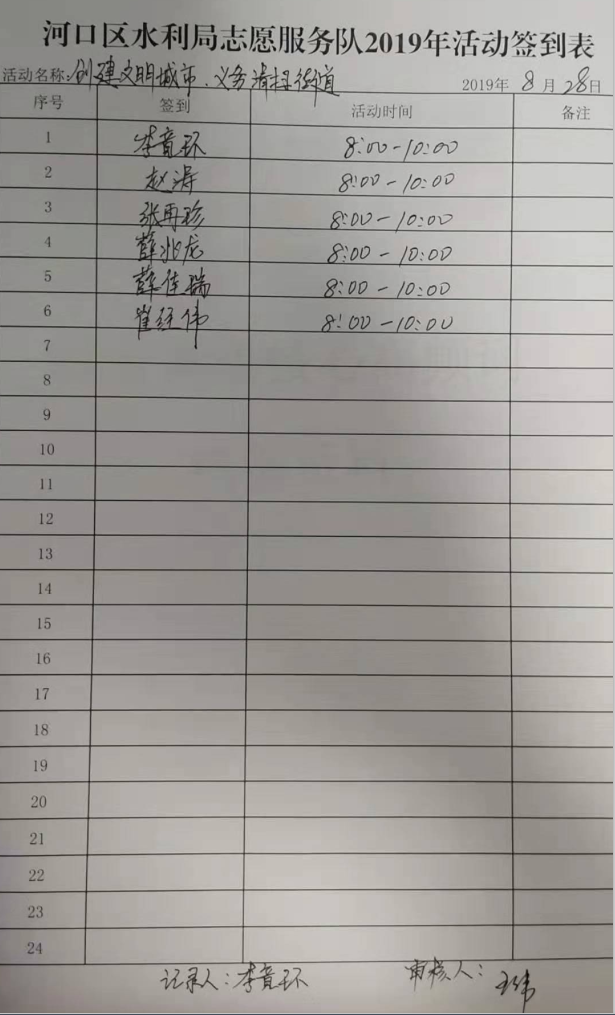 河口区水利局志愿服务队2019年活动签到表
活动名称:创建文明城市、义务清扫街道 2019年 8 月 28日
序号 签到 活动时间 备注
1 李竟环 8:00-10:00
2 赵涛 8:00-10:00
3 张再珍 8:00-10:00
4 薛兆龙 8:00-10:00
5 薛佳瑞 8:00-10:00
6 崔经伟 8:00-10:00
7
8
9
10
11
12
13
14
15
16
17
18
19
20
21
22
23
24
记录人:李竟环 审核人: 王伟